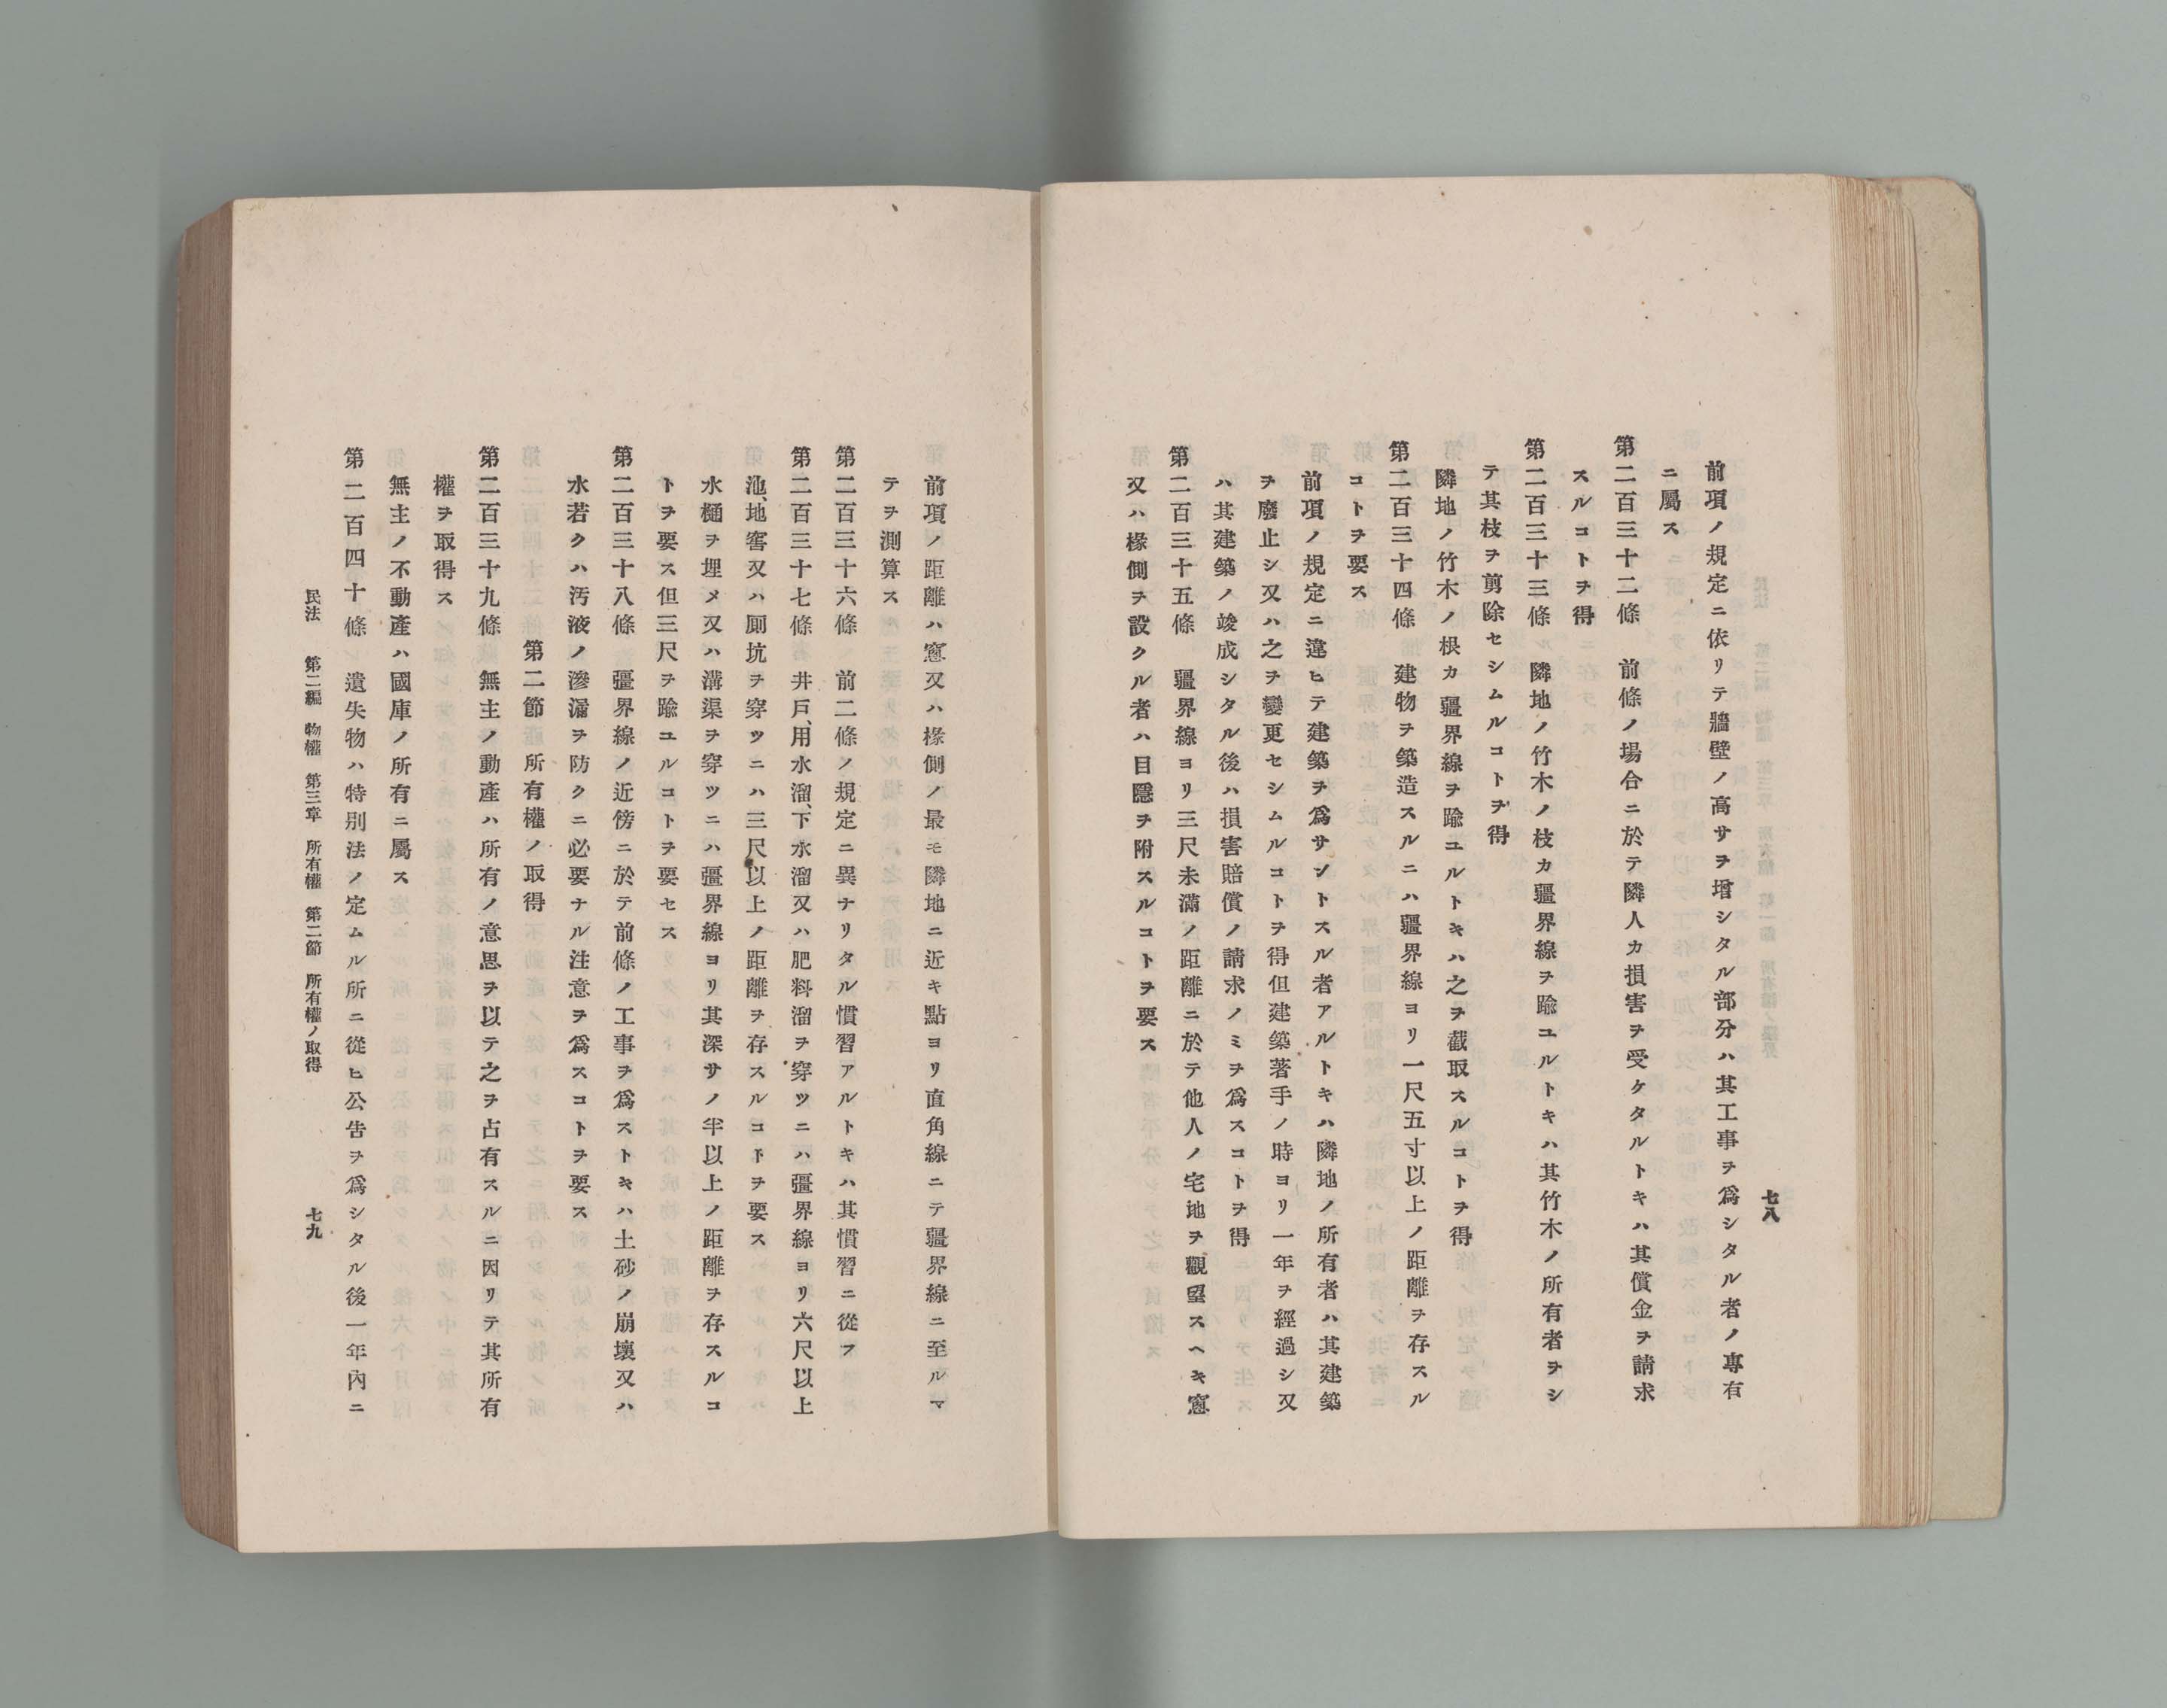 七八
前項ノ規定ニ依リテ牆壁ノ高サヲ增シタル部分ハ其工事ヲ爲シタル者ノ專有
ニ屬ス
第二百三十二條　前條ノ場合ニ於テ隣人カ損害ヲ受ケタルトキハ其償金ヲ請求
スルコトヲ得
第二百三十三條　隣地ノ竹木ノ枝カ疆界線ヲ踰ユルトキハ其竹木ノ所有者ヲシ
テ其枝ヲ剪除セシムルコトヲ得
隣地ノ竹木ノ根カ疆界線ヲ踰ユルトキハ之ヲ截取スルコトヲ得
第二百三十四條　建物ヲ築造スルニハ疆界線ヨリ一尺五寸以上ノ距離ヲ存スル
コトヲ要ス
前項ノ規定ニ違ヒテ建築ヲ爲サントスル者アルトキハ隣地ノ所有者ハ其建築
ヲ廢止シ又ハ之ヲ變更セシムルコトヲ得但建築著手ノ時ヨリ一年ヲ經過シ又
ハ其建築ノ竣成シタル後ハ損害賠償ノ請求ノミヲ爲スコトヲ得
第二百三十五條　疆界線ヨリ三尺未滿ノ距離ニ於テ他人ノ宅地ヲ觀望スヘキ窻
又ハ椽側ヲ設クル者ハ目隱ヲ附スルコトヲ要ス
前項ノ距離ハ窻又ハ椽側ノ最モ隣地ニ近キ點ヨリ直角線ニテ疆界線ニ至ルマ
テヲ測算ス
第二百三十六條　前二條ノ規定ニ異ナリタル慣習アルトキハ其慣習ニ從フ
第二百三十七條　井戶、用水溜、下水溜又ハ肥料溜ヲ穿ツニハ疆界線ヨリ六尺以上
池、地窖又ハ厠坑ヲ穿ツニハ三尺以上ノ距離ヲ存スルコトヲ要ス
水樋ヲ埋メ又ハ溝渠ヲ穿ツニハ疆界線ヨリ其深サノ半以上ノ距離ヲ存スルコ
トヲ要ス但三尺ヲ踰ユルコトヲ要セス
第二百三十八條　疆界線ノ近傍ニ於テ前條ノ工事ヲ爲ストキハ土砂ノ崩壞又ハ
水若クハ汚液ノ滲漏ヲ防クニ必要ナル注意ヲ爲スコトヲ要ス
第二節　所有權ノ取得
第二百三十九條　無主ノ動產ハ所有ノ意思ヲ以テ之ヲ占有スルニ因リテ其所有
權ヲ取得ス
無主ノ不動產ハ國庫ノ所有ニ屬ス
第二百四十條　遺失物ハ特別法ノ定ムル所ニ從ヒ公告ヲ爲シタル後一年內ニ
民法　第二編　物權　第三章　所有權　第二節　所有權ノ取得　七九